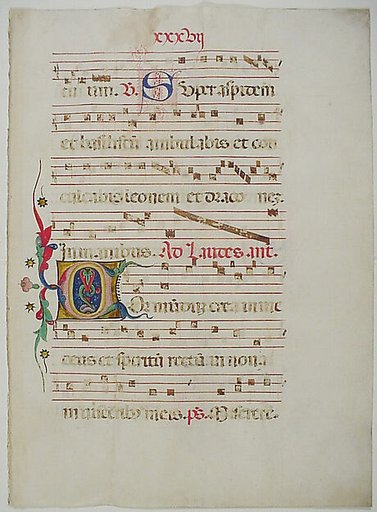 xxxvij
V. Super aspidem
et basiliscum ambulabis et con
culcabis leonem et draco nez.
in manibus. Ad Laudes. ant.
Cor mundum crea in me
deus et spiritum rectum in noua
in uisceribus meis. ps. Miserere.